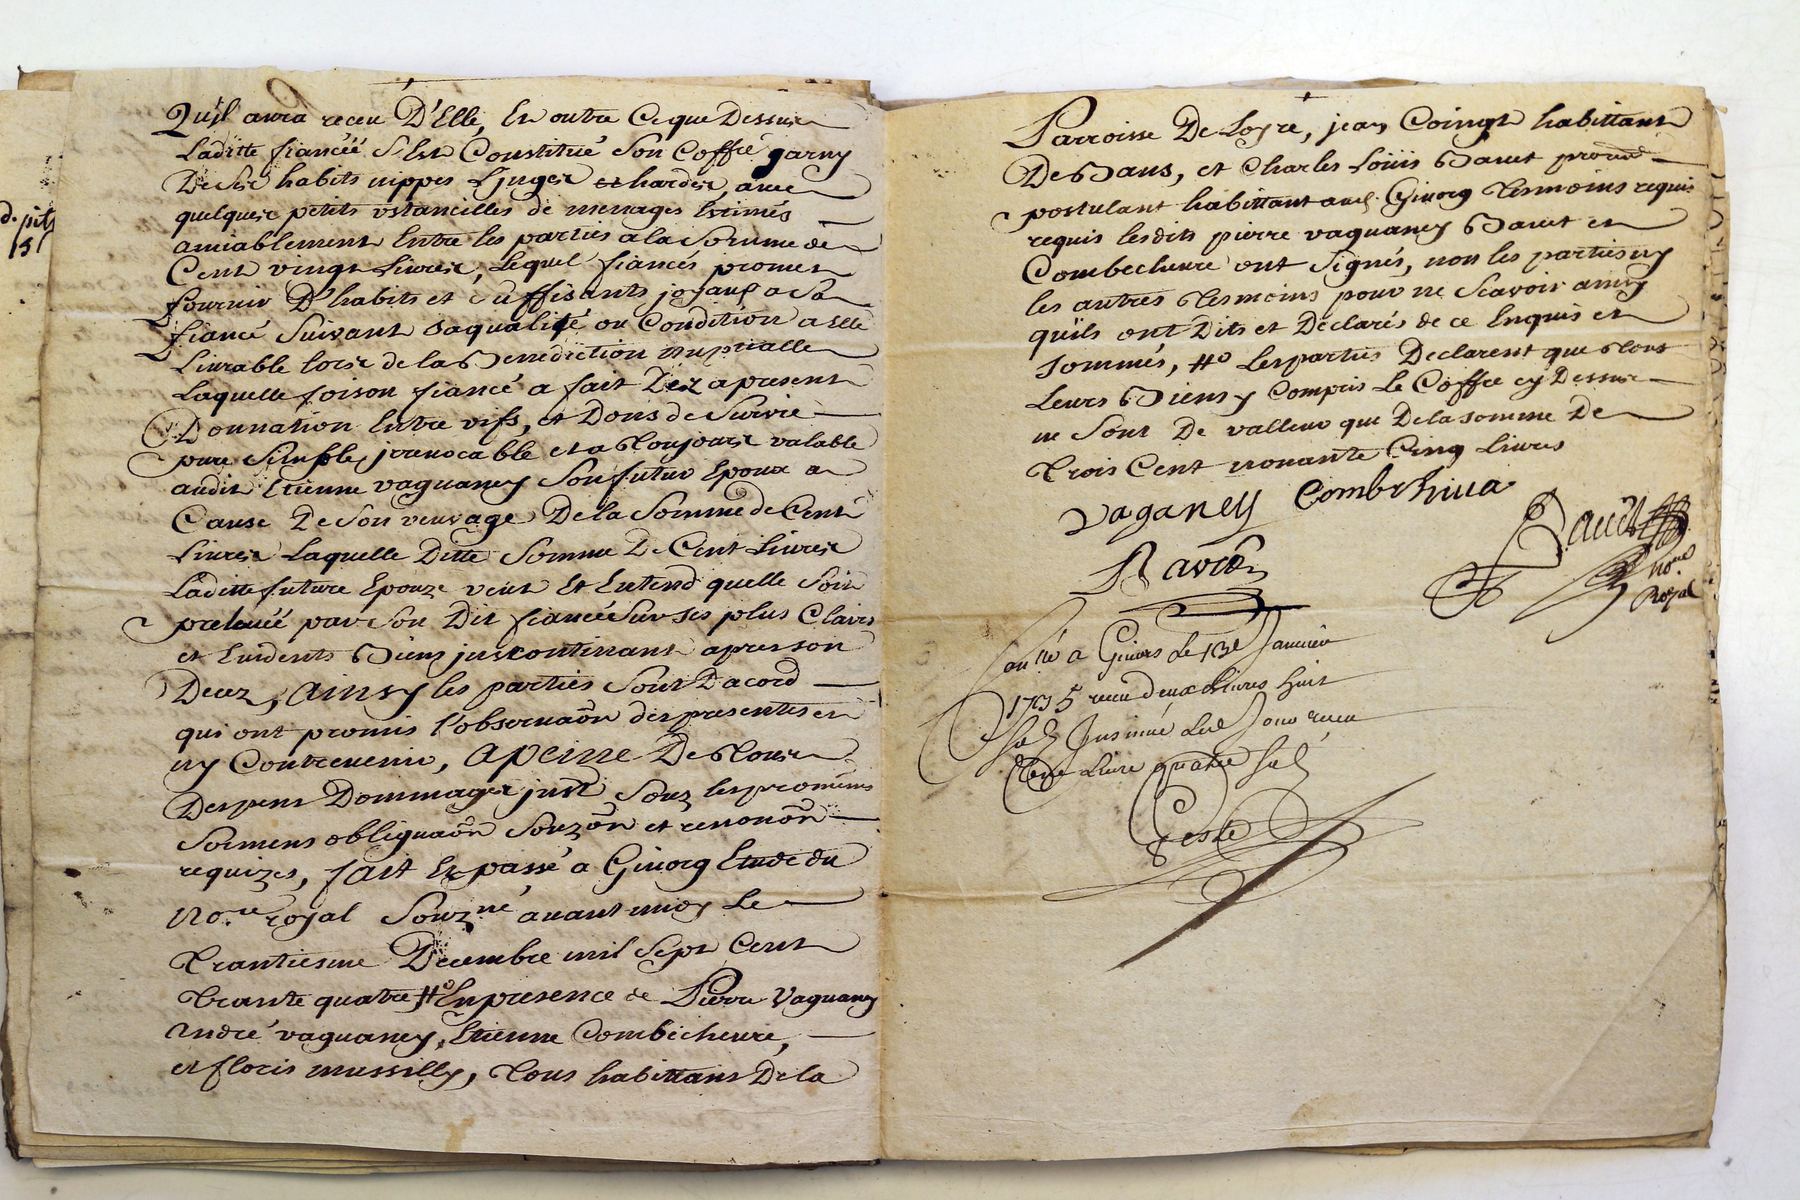 d. pite
151
Qu'il aura receu D'Elle, En outre Ce que Dessus
Laditte fiancéé S'est Constitué Son Coffre garny
De Ses habits nippes Linges et hardes, avec
quelques petits ustancilles de menages Estimés
amiablement Entre les parties a la Somme de
Cent vingt Livres, Lequel fiancés promet
fournir D'habits et suffisants joyaux a Sa
fiancé Suivant Sa qualité ou Condition a Elle
Livrable lors de la Benediction nuptialle
Laquelle foison fiancé a fait Dez apresent
Donnation Entre vifs, et Dons de Survie
pure Simple, jrrevocable et a Toujours valable
audit Etienne vaguaney Son futur Epoux a
Cause De Son veuvage De la Somme de Cent
Livres Laquelle Ditte Somme De Cent Livres
Laditte future Epouze veut Et Entend quelle Soit
prelevéé par Son Dit fiancé Sur Ses plus Clairs
et Evidents Biens jncontinant apres son
Decez, ainsy les parties Sont D'acord
qui ont promis l'observaôn des presentes et
ny Contrevenir, a peine De Tous
Despens Dommages jnst Souz les promêsses
Sermens obligaôn Souzôn et renonôn
requizes, fait Et passé a Givorg Etude du
No.re royal Souz.né avant midy Le
Trantiesme Decembre mil Sept Cent
Trante quatre #° En presence de Pierre Vaguaney
André vaguaney, Etienne Combecheure,
et floris mussilly, Tous habittans De la
Parroisse De Loyre, jean Coingt habittant
De Bans, et Charles Loüis Bavet procur
postulant habittant aud. Givorg Tesmoins requis
requis lesdits pierre vaguaney Bavet et
Combecheure ont Signés, non les parties ny
les autres Tesmoins pour ne Scavoir ainsy
qu'ils ont Dits et Declarés de ce Enquis et
Sommés, #° Les parties Declarent que Tous
Leurs Biens y Compris Le Coffre cy Dessus
ne Sont De valleur que De la somme De
Trois Cent nonante Cinq Livres
vaganey Combrhiua
no.re
Royal
a Givors Le 13e Janvier
1735 receu deux Livres huit
Sols Jnsinué Led Jour receu
Livre quatre Sols